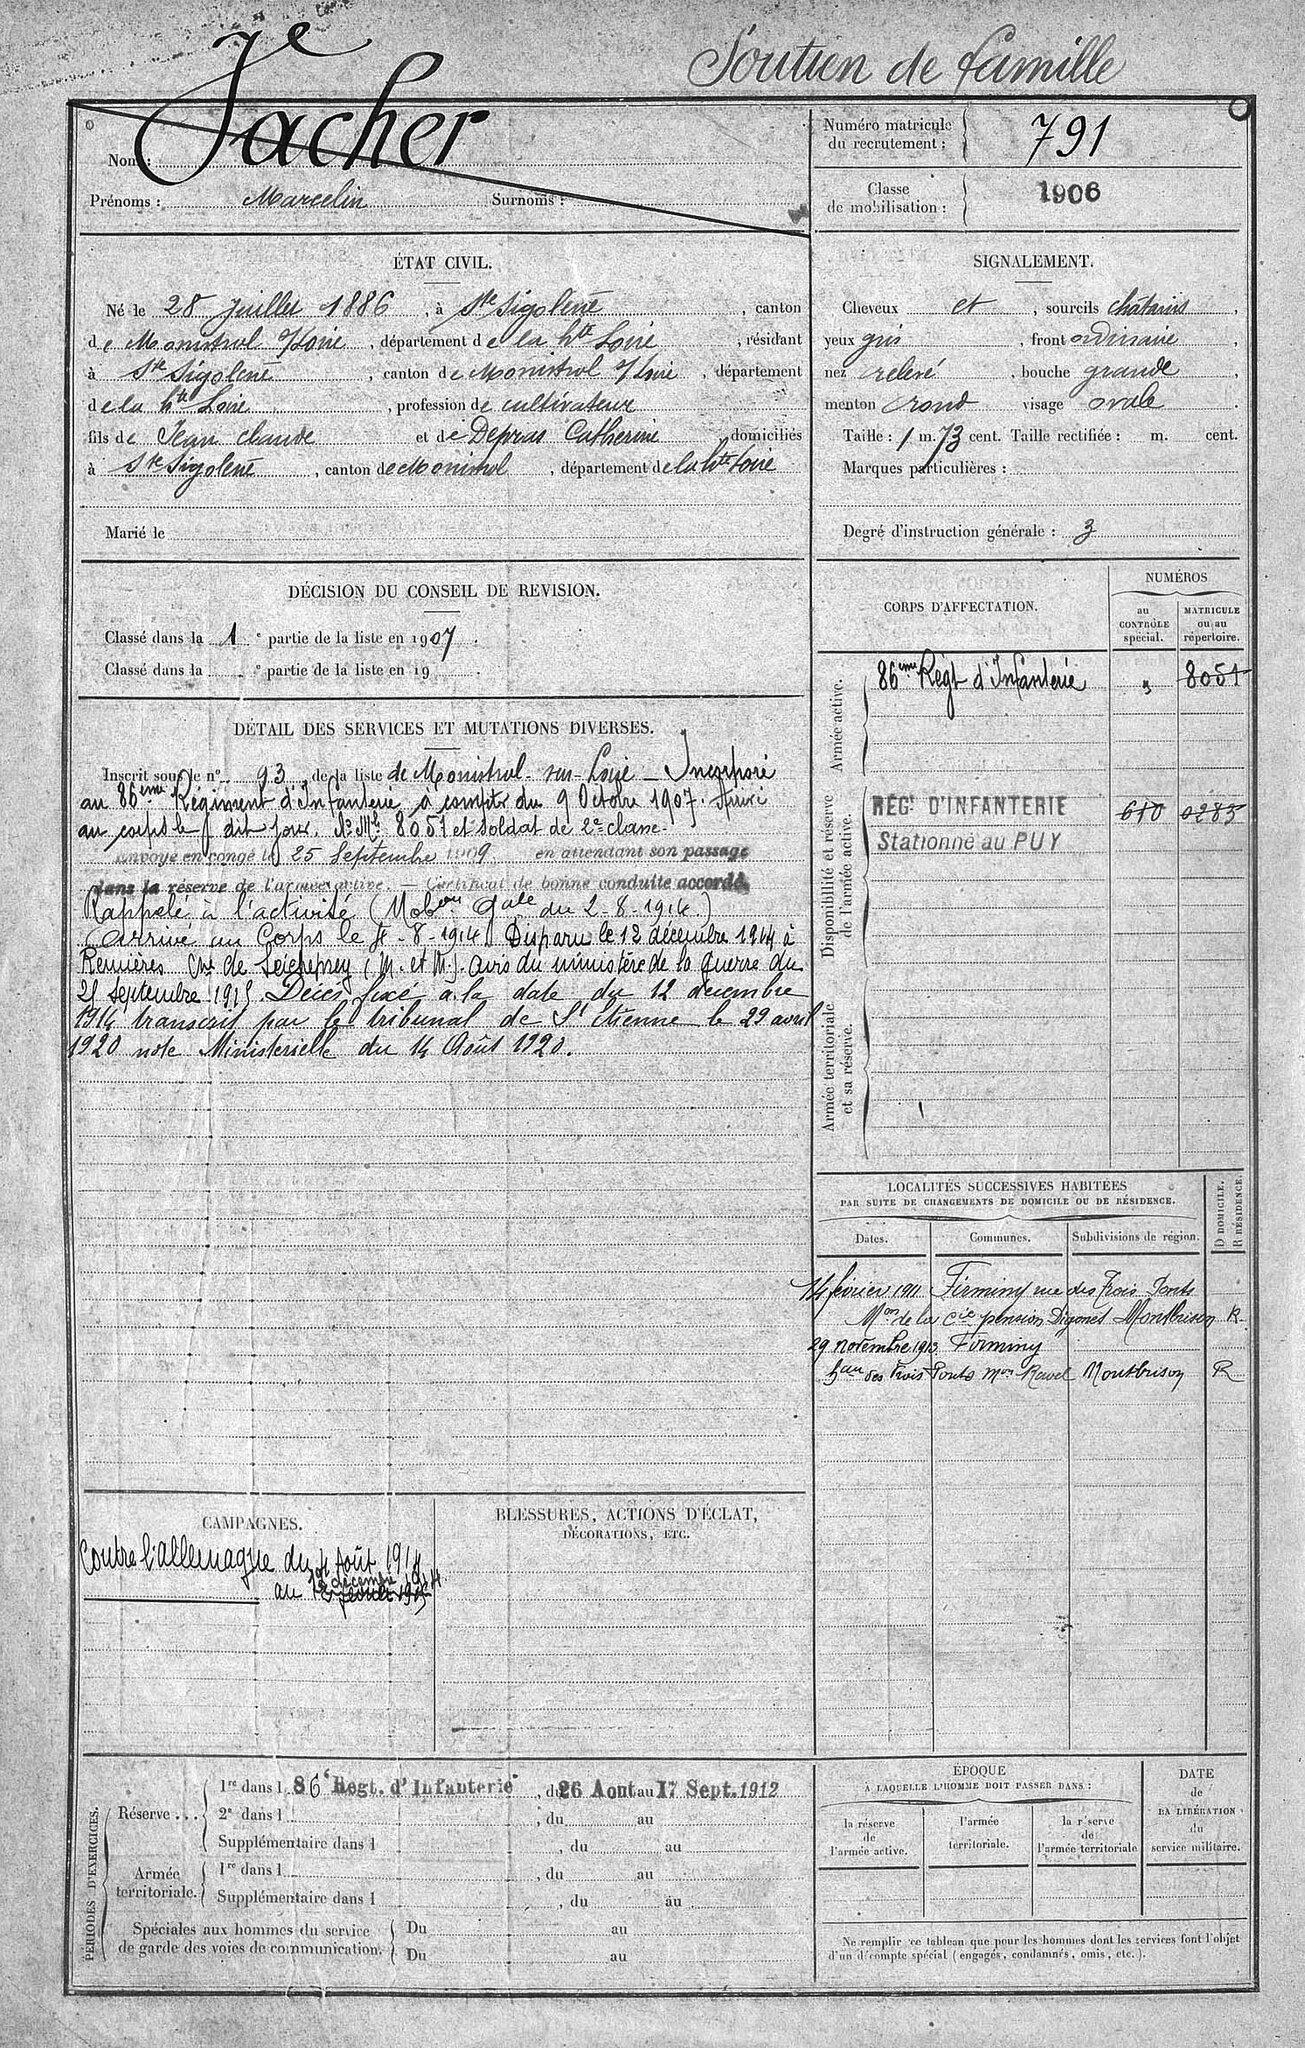 Soutien de famille
Nom : Vacher
Prénoms : Marcelin Surnoms :
Numéro matricule du recrutement : 791
Classe de mobilisation : 1906
ÉTAT CIVIL.
Né le 28 Juillet 1886, à Ste Sigolène, canton
de Monistrol s/Loire, département de la hte Loire, résidant
à Ste Sigolène, canton de Monistrol s/Loire, département
de la hte Loire, profession de cultivateur
fils de Jean Claude et de Depras Catherine domiciliés
à Ste Sigolène, canton de Monistrol, département de la hte Loire
Marié le
SIGNALEMENT.
Cheveux et, sourcils châtains,
yeux gris, front ordinaire,
nez relevé, bouche grande,
menton rond visage ovale.
Taille : 1 m. 73 cent. Taille rectifiée : m. cent.
Marques particulières :
Degré d'instruction générale : 3
DÉCISION DU CONSEIL DE REVISION.
Classé dans la 1e partie de la liste en 1907.
Classé dans la e partie de la liste en 19 .
DÉTAIL DES SERVICES ET MUTATIONS DIVERSES.
Inscrit sous le n° 93 de la liste de Monistrol-sur-Loire - Incorporé
au 86ème Régiment d'Infanterie à compter du 9 Octobre 1907. Arrivé
au corps le dit jour. No Mle 8051 et soldat de 2e classe.
Envoyé en congé le 25 Septembre 1909 en attendant son passage
dans la réserve de l'armée active. — Certificat de bonne conduite accordé.
Rappelé à l'activité (Mobon Gale du 2-8-1914.)
Arrivé au Corps le 4-8-1914. Disparu le 12 décembre 1914 à
Remières Cne de Seicheprey (M. et M.). avis du ministère de la guerre du
25 septembre 1915. Décès fixé à la date du 12 décembre
1914 transcrit par le tribunal de St Etienne le 29 avril
1920 note Ministerielle du 14 Août 1920.
CORPS D'AFFECTATION.
NUMÉROS
au CONTRÔLE spécial.
MATRICULE ou au répertoire.
Armée active.
86ème Régt d'Infanterie " 8051
Disponibilité et réserve de l'armée active.
RÉGt D'INFANTERIE 610 0285
Stationné au PUY
Armée territoriale et sa réserve.
LOCALITÉS SUCCESSIVES HABITÉES
PAR SUITE DE CHANGEMENTS DE DOMICILE OU DE RÉSIDENCE.
Dates. Communes. Subdivisions de région. D DOMICILE. R RÉSIDENCE.
14 février 1911 Firminy rue des Trois Ponts
Mon de la Cie pension Digonet Montbrison R
29 novembre 1913 Firminy
des Trois Ponts Mon Ravel Montbrison R
CAMPAGNES.
Contre l'allemagne du 4 Août 1914
au 12 décembre 1914
BLESSURES, ACTIONS D'ÉCLAT,
DÉCORATIONS, ETC.
PÉRIODES D'EXERCICES.
Réserve . . .
1re dans l 86e Regt. d'Infanterie, du 26 Aout au 17 Sept. 1912
2e dans l , du au
Supplémentaire dans l , du au
Armée territoriale.
1re dans l , du au
Supplémentaire dans l , du au
Spéciales aux hommes du service
de garde des voies de communication.
Du au
Du au
ÉPOQUE
À LAQUELLE L'HOMME DOIT PASSER DANS :
la réserve de l'armée active.
l'armée territoriale.
la réserve de l'armée territoriale
DATE
de
LA LIBÉRATION
du
service militaire.
Ne remplir ce tableau que pour les hommes dont les services font l'objet
d'un décompte spécial (engagés, condamnés, omis, etc.).